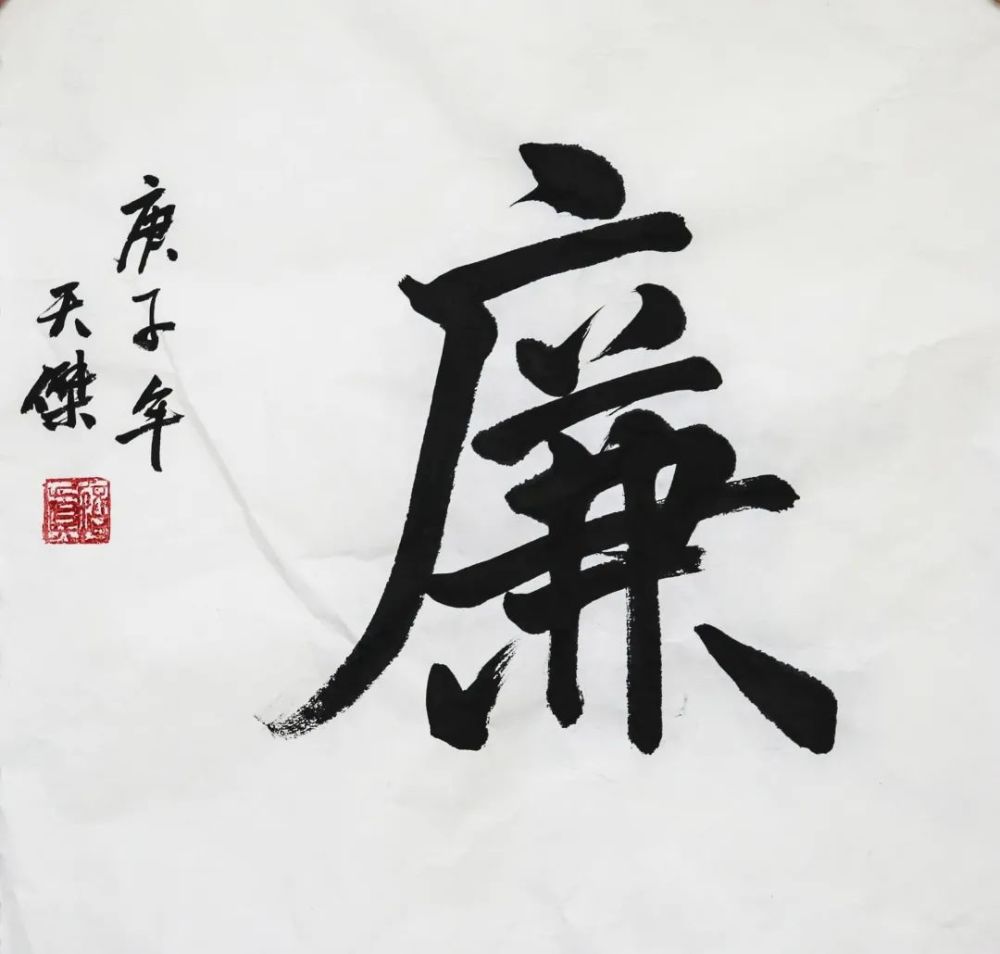 廉
庚子年
天傑